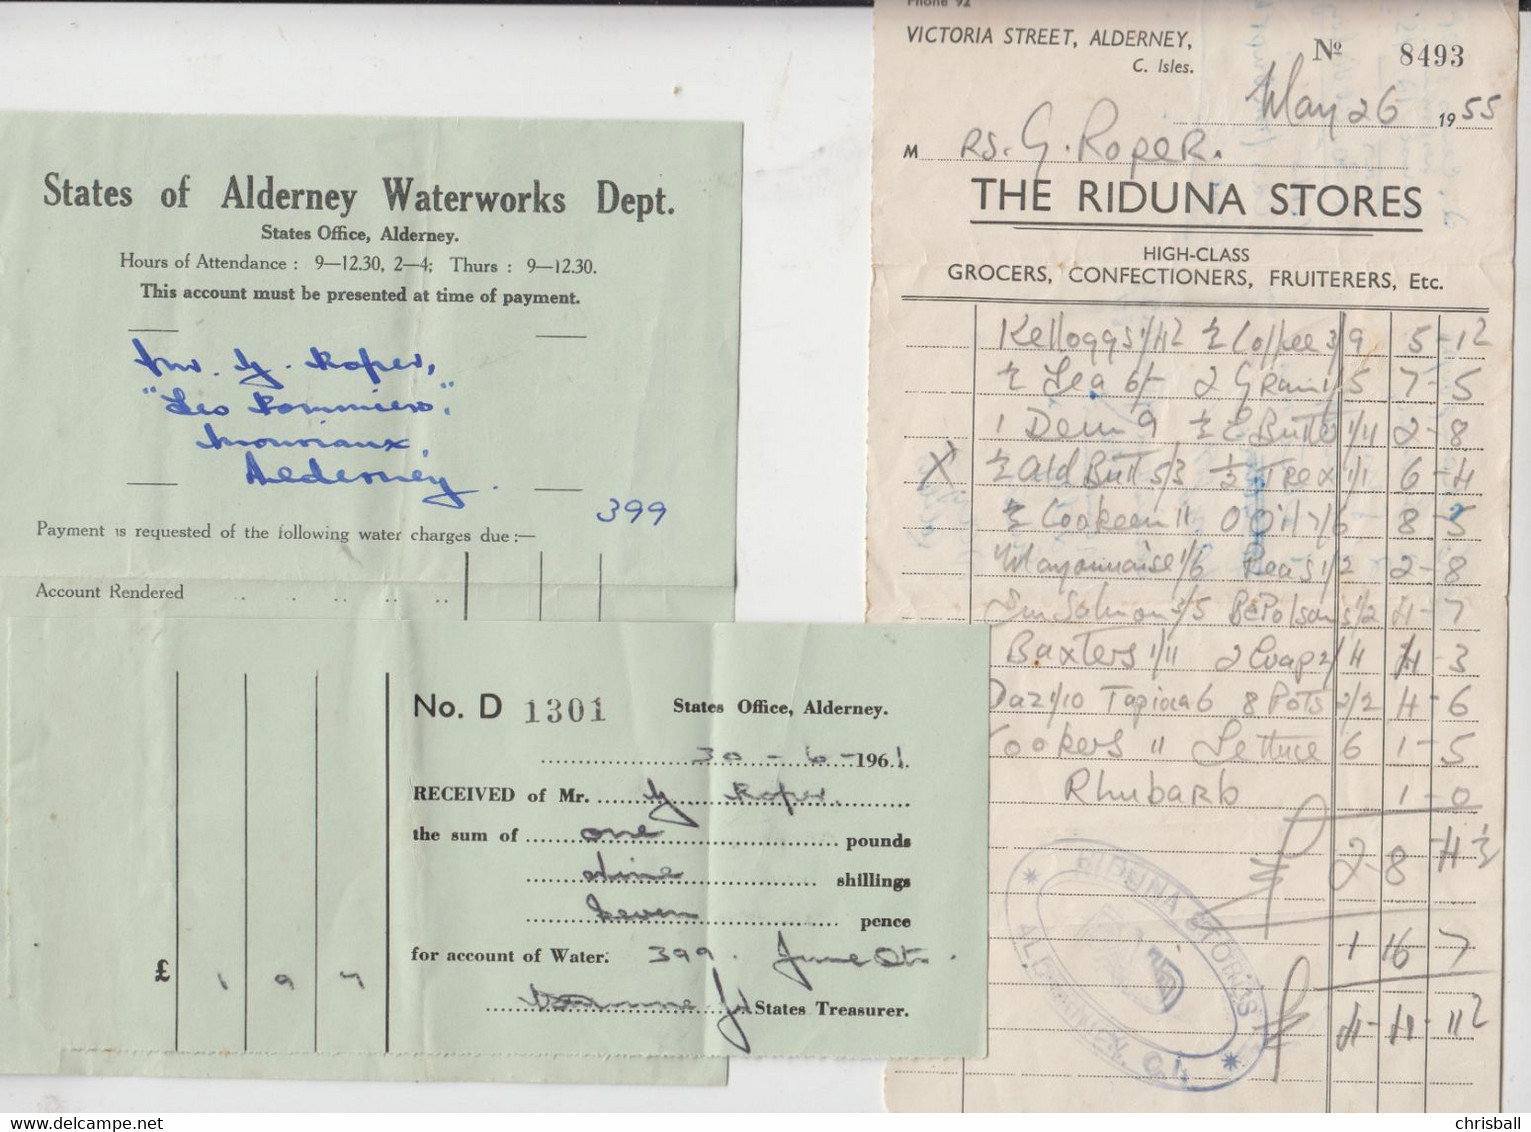 States of Alderney Waterworks Dept.
States Office, Alderney.
Hours of Attendance : 9—12.30, 2—4; Thurs : 9—12.30.
This account must be presented at time of payment.
Mr. G. Roper,
"Les Pommiers,"
Mouriaux,
Alderney.
399
Payment is requested of the following water charges due :—
Account Rendered
No. D 1301 States Office, Alderney.
30 - 6 - 1961.
RECEIVED of Mr. G Roper.
the sum of one pounds
nine shillings
seven pence
for account of Water. 399. June Qtr.
States Treasurer.
£ 1 9 7
Phone 92
VICTORIA STREET, ALDERNEY,
C. Isles.
Nº 8493
May 26 1955
M RS. G. Roper.
THE RIDUNA STORES
HIGH-CLASS
GROCERS, CONFECTIONERS, FRUITERERS, Etc.
Kelloggs 1/4½ ½ Coffee 3/9 5-1½
½ Tea 6/- 2 Gran 1/5 7-5
1 Dem 9 ½ C Butte 1/11 2-8
X ½ Ald Butt 5/3 ½ Trex 1/1 6-4
½ Cookeen 11 O Oil 7/6 8-5
Mayonnaise 1/6 Peas 1/2 2-8
Sm Salmon 3/5 1/2 4-7
Baxters 1/11 2 Evap 2/4 4-3
Daz 1/10 Tapioca 6 8 Pots 2/2 4-6
Cookers 11 Lettuce 6 1-5
Rhubarb 1-0
2-8-4½
1 16 7
4-4-11½
RIDUNA STORES
ALDERNEY, C.I.
chrisball